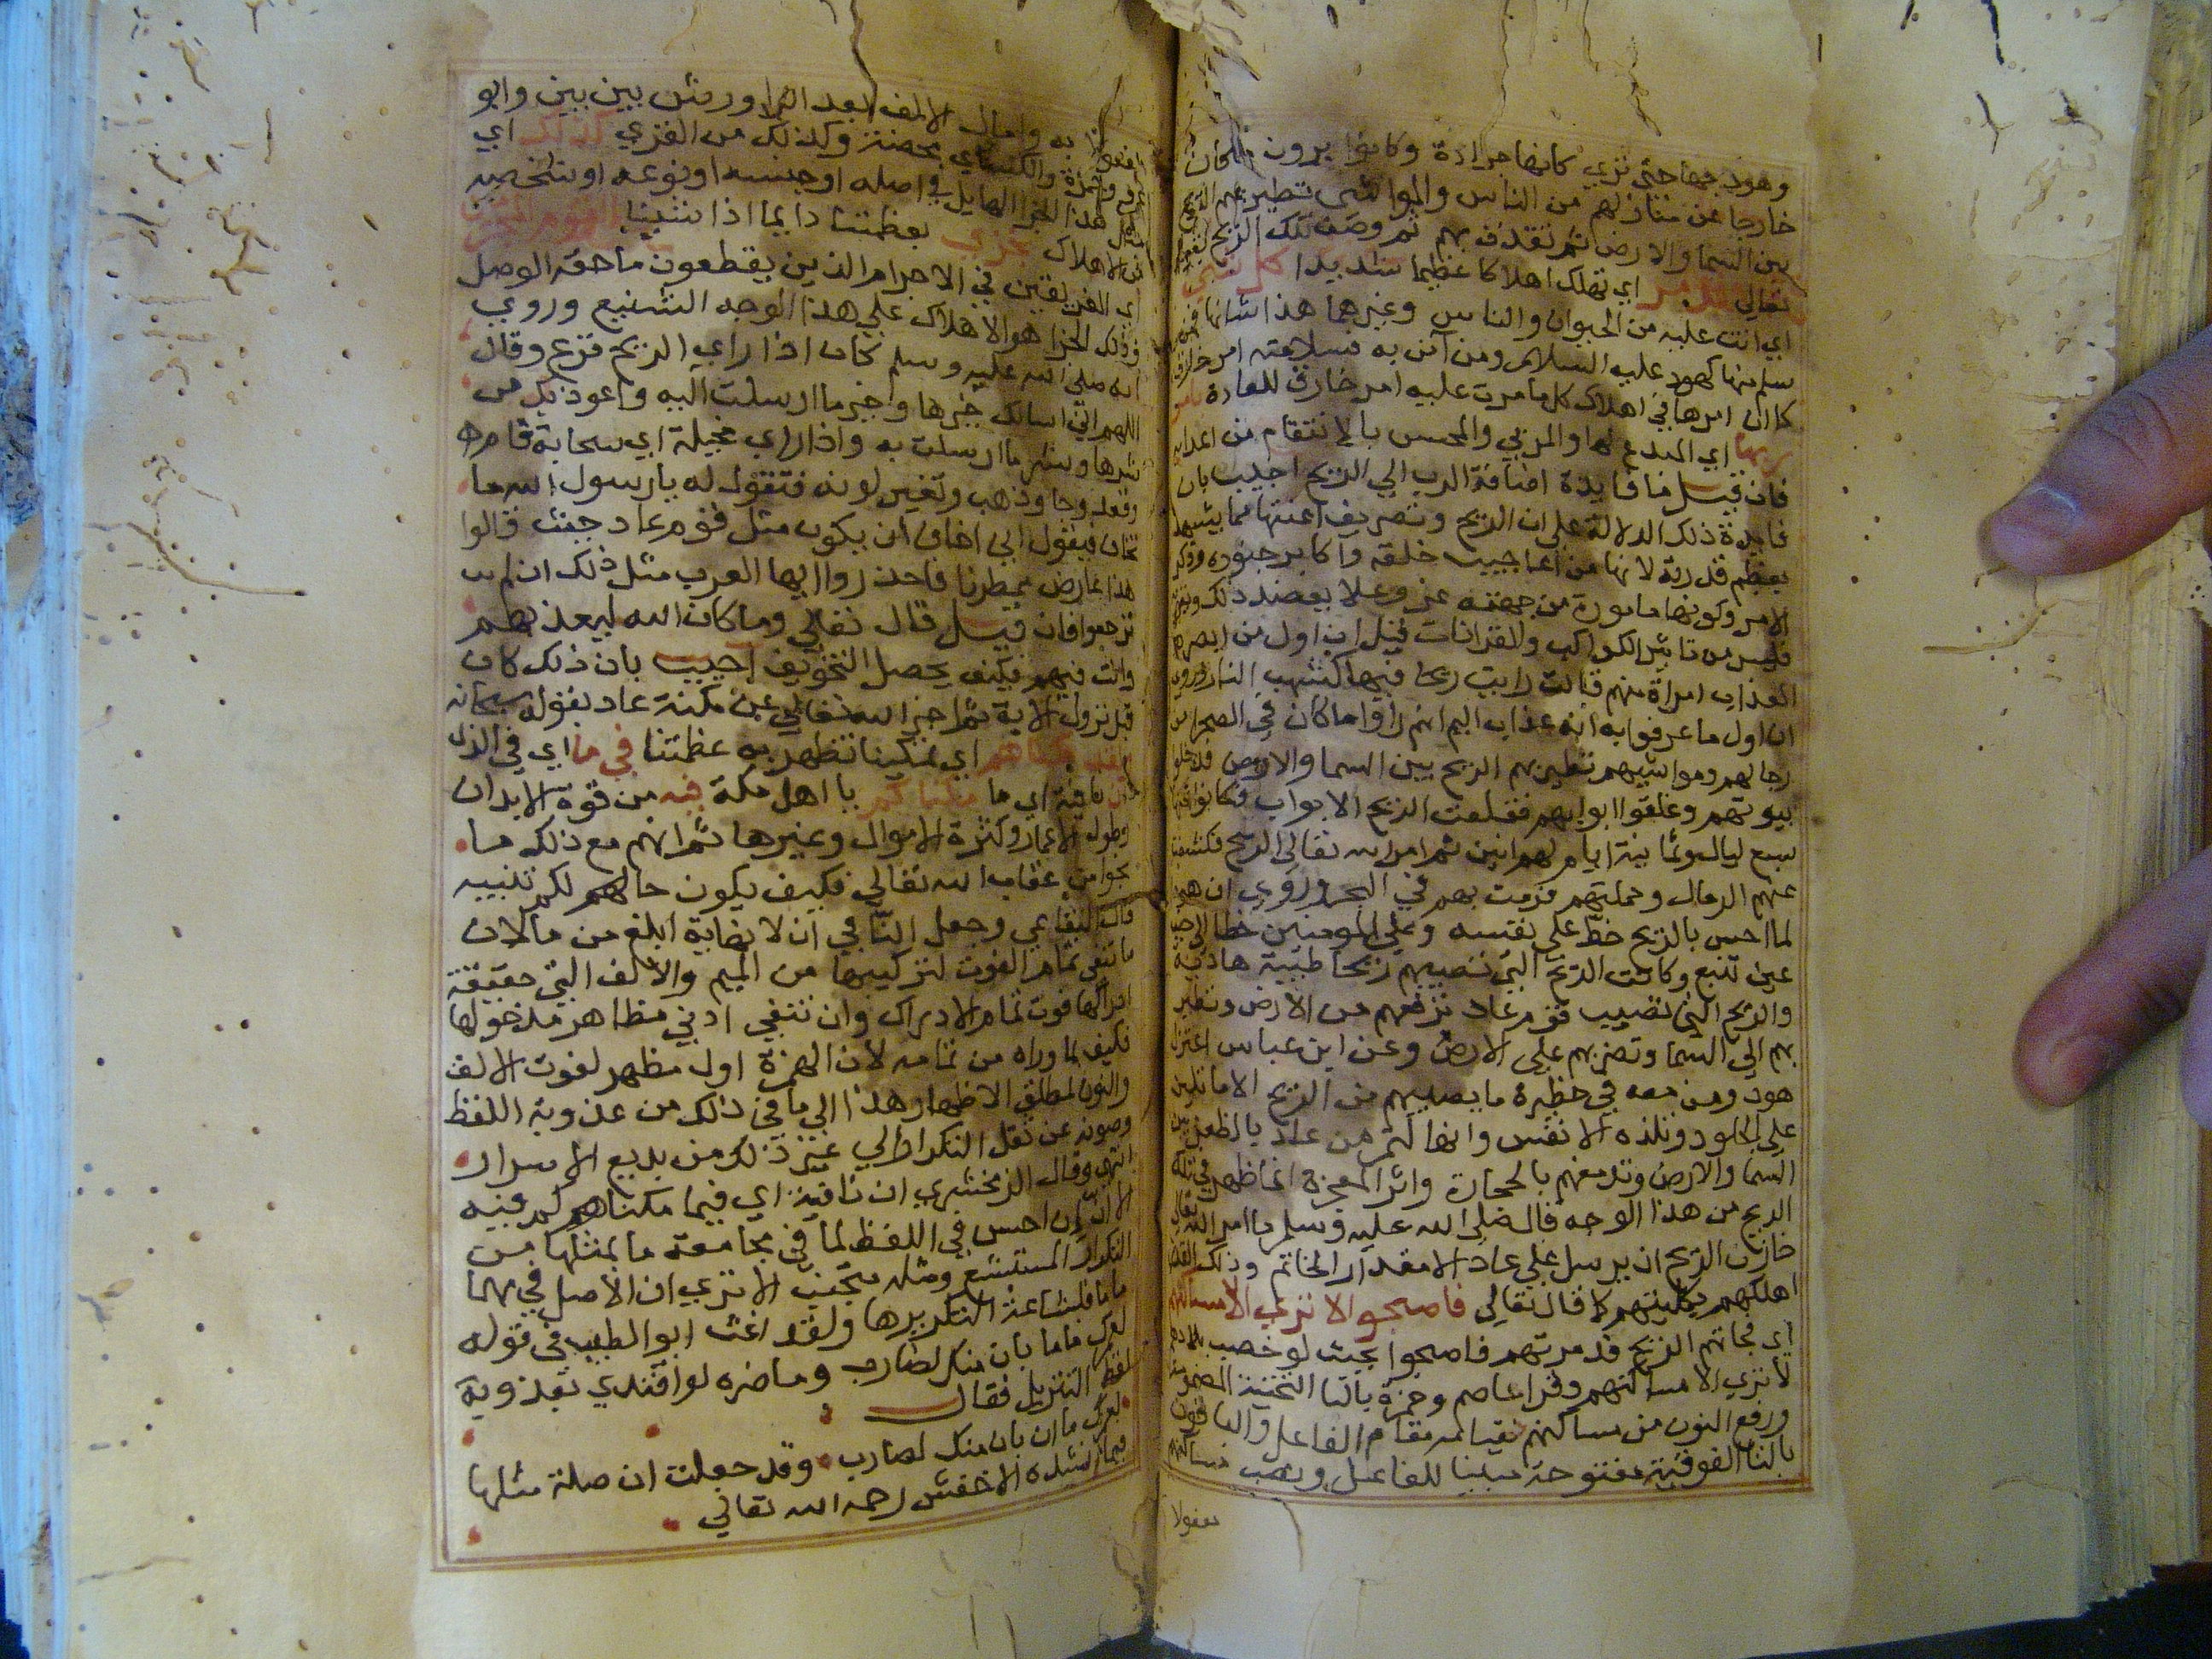 وهودجها حتى تري كانها جرادة وكانوا يرون ما كان
خارجا عن منازلهم من الناس والمواشي تطير بهم الريح
بين السما والارض ثم تقذف بهم ثم وصف تلك الريح بقوله
تعالي تدمر اي تهلك اهلاكا عظيما شديدا كل شي
اي اتت عليه من الحيوان والناس وغيرهما هذا شانها فمن
سلم منها كهود عليه السلام ومن آمن به سلامته امر خارق
كما ان امرها في اهلاك كل ما مرت عليه امر خارق للعادة بامر
ربها اي المبدع لها والمربي والمحسن بالانتقام من اعدايه
فان قيل ما فايدة اضافة الرب الي الريح اجيب بان
فايدة ذلك الدلالة علي ان الريح وتصريف اعنتها مما يشهد
بعظم قدرته لانها من اعاجيب خلقه واكابر جنوده وذكر
الامر وكونها مامورة من جهته عز وعلا يعضد ذلك ويقويه
فليس من تاثير الكواكب والقرانات قيل ان اول من ابصر
العذاب امراة منهم قالت رايت ريحا فيها كشهب النار وروي
ان اول ما عرفوا به انه عذاب اليم انهم راوا ما كان في الصحرا من
رحالهم ومواشيهم تطير بهم الريح بين السما والارض فدخلوا
بيوتهم وغلقوا ابوابهم فقلعت الريح الابواب فكانوا فيها
سبع ليال وثمانية ايام لهم انين ثم امر الله تعالي الريح فكشفت
عنهم الرمال وحملتهم فرمت بهم في البحر وروي ان هود
لما احس بالريح خط علي نفسه وعلي المومنين خطا الي جنب
عين تنبع وكانت الريح التي تصيبهم ريحا طيبة هادية
والريح التي تصيب قوم عاد ترفعهم من الارض وتطير
بهم الي السما وتضربهم علي الارض وعن ابن عباس اعتزل
هود ومن معه في حظيرة ما يصيبهم من الريح الا ما تلين
علي الجلود وتلذه الانفس وانها لتمر من عاد بالظعن بين
السما والارض وتدمغهم بالحجارة واثر المعجزة انما ظهر في تلك
الريح من هذا الوجه قال صلي الله عليه وسلم ما امر الله تعالي
خازن الريح ان يرسل علي عاد الا مقدار الخاتم وذلك القدر
اهلكهم بكليتهم كما قال تعالي فاصبحوا لا تري الا مساكنهم
اي فجاتهم الريح فدمرتهم فاصبحوا بحيث لو حضرت بلادهم
لا تري الا مساكنهم وقرا عاصم وحمزة باليا التحتية المضمومة
ورفع النون من مساكنهم لقيامه مقام الفاعل والباقون
بالتا الفوقية مفتوحة مبنيا للفاعل ونصب مساكنهم
مفعولا
مفعولا به وامال الالف بعد الرا ورش بين بين وابو
عمرو وحمزة والكساي محضة وكذلك من القري كذلك اي
مثل هذا الجزا الهايل في اصله او جنسه او نوعه او شخصه
من الاهلاك نجزي بعظمتنا دايما اذا شينا القوم المجرمين
اي العريقين في الاجرام الذين يقطعون ما حقه الوصل
وذلك الجزا هو الاهلاك علي هذا الوجه الشنيع وروي
انه صلي الله عليه وسلم كان اذا راي الريح فزع وقال
اللهم اني اسالك خيرها وخير ما ارسلت اليه واعوذ بك من
شرها وشر ما ارسلت به واذا راي مخيلة اي سحابة قام
وقعد وجا وذهب وتغير لونه فنقول له يا رسول الله ما
تخاف فيقول اني اخاف ان يكون مثل قوم عاد حيث قالوا
هذا عارض ممطرنا فاحذروا ايها العرب مثل ذلك ان لم
ترجعوا فان قيل قال تعالي وما كان الله ليعذبهم
وانت فيهم فكيف يحصل التخويف اجيب بان ذلك كان
قبل نزول الاية ثم اخبر الله تعالي عن مكنة عاد بقوله سبحانه
ولقد مكناهم اي تمكينا تظهر به عظمتنا في ما اي في الذي
ان نافية اي ما مكناكم يا اهل مكة فيه من قوة الابدان
وطول الاعمار وكثرة الاموال وغيرها ثم انهم مع ذلك ما
نجوا من عقاب الله تعالي فكيف يكون حالهم لكم تنبيه
قال البقاعي وجعل النافي ان لانها ابلغ من ما لان
ما تنفي تمام الفوت لتركيبها من الميم والالف التي حقيقة
ادراكها فوت تمام الادراك وان تنفي ادني مظاهر مدخولها
فكيف بما وراه من تمامه لان الهمزة اول مظهر لفوت الالف
والنون لمطلق الاظهار وهذا الي ما في ذلك من عذوبة اللفظ
وصونه عن ثقل التكرار الي غير ذلك من بديع الاسرار
انتهي وقال الزمخشري ان نافية اي فيما ما مكناكم فيه
الا ان ان احسن في اللفظ لما في مجامعة ما بمثلها من
التكرار المستبشع ومثله مجتنب الا تري ان الاصل في مهما
ماما فلبشاعة التكرير ها ولقد اغث ابو الطيب في قوله
لعمرك ماما بان منك لضارب وما ضره لو اقتدي بعذوبة
لفظ التنزيل فقال
لعمرك ما ان بان منك لضارب وقد جعلت ان صلة مثلها
فيما انشده الاخفش رحمه الله تعالي